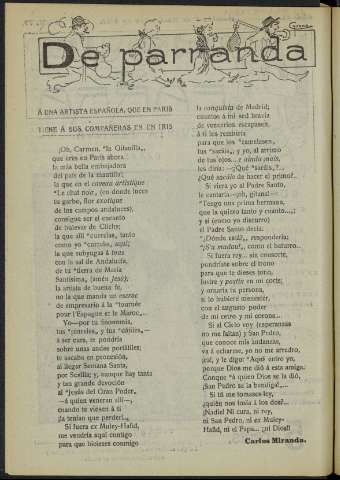 De parranda
Á UNA ARTISTA ESPAÑOLA, QUE EN PARIS
TIENE Á SUS COMPAÑERAS EN UN IRIS
¡Oh, Carmen, "la Gitanilla„,
que eris en París ahora
la más bella embajadora
del país de la mantilla!;
la que en el comea artistique
"Le chat noir„ (en donde luces
tu garbo, flor exotique
de los campos andaluces),
consigue ser el encanto
de bulevar de Clichy;
la que allí "currelas„ tanto
como yo "currelo„ aquí;
la que subyugas á todos
con la sal de Andalucía,
de tu "tierra de María
Santísima„ (amén Jesú);
la artista de buena fe,
no la que manda un
de empresario á la "tournée
pour l'Espagne et le Maroc„.
Yo—por tu Sinsonería,
tus "currelos„ y tus "cantes„—
á ser cura, te pondría
sobre unas andas portátiles;
te sacaba en procesión,
al llegar Semana Santa,
por Sevilla; y, aunque hay tanta
y tan grande devoción
al "Jesús del Gran Poder„
—á quien veneran allí—,
cuando te viesen á ti
¡la tenían que perder!...
Si fuera ex Muley-Hafid,
me vendría aquí contigo
para que hicieses conmigo
la conquista de Madrid;
cuantos á mi sed bravía
de vencerlos escapasen,
á ti los remitiría
para que los "camelasen„
tus "sacáis„, y yo, al arrimo
de tus ojos... y ainda mais,
les diría: —¡Qué "sacáis„?...
¡Qué sacáis de hacer el primo?
Si viera yo al Padre Santo,
le cantaría—¡oh, gitana!—:
"Tengo una prima hermana,
que la quiero tanto y cuanto...„;
y si (enojo yo discurro)
el Padre Santo decía:
"¿Dónde está?„, respondería:
"¡S'a mudau!„, como el baturro.
Si fuera rey... sin consorte,
pondríate sobre el trono
para que te dieses tono,
lustre y postín en mi corte;
y amaría tu persona,
si lo hubiere menester,
con el augusto poder
de mi cetro y mi corona...
Si al Cielo voy (esperanzas
no me faltan) y San Pedro,
que conoce mis andanzas,
va á echarme, yo no me arredro,
¡ca!, y le digo: "Aquí entro yo,
porque Dios me dió á esta amiga;
Conque "á quien Dios se la dió,
¡San Pedro se la bendiga!„...
Si tú me tomases ley,
¿quién nos tosía á los dos?...
¡Nadie! Ni cura, ni rey,
ni San Pedro, ni ex Muley-
Hafid, ni el Papa... ¡ni Dios!!
Carlos Miranda.